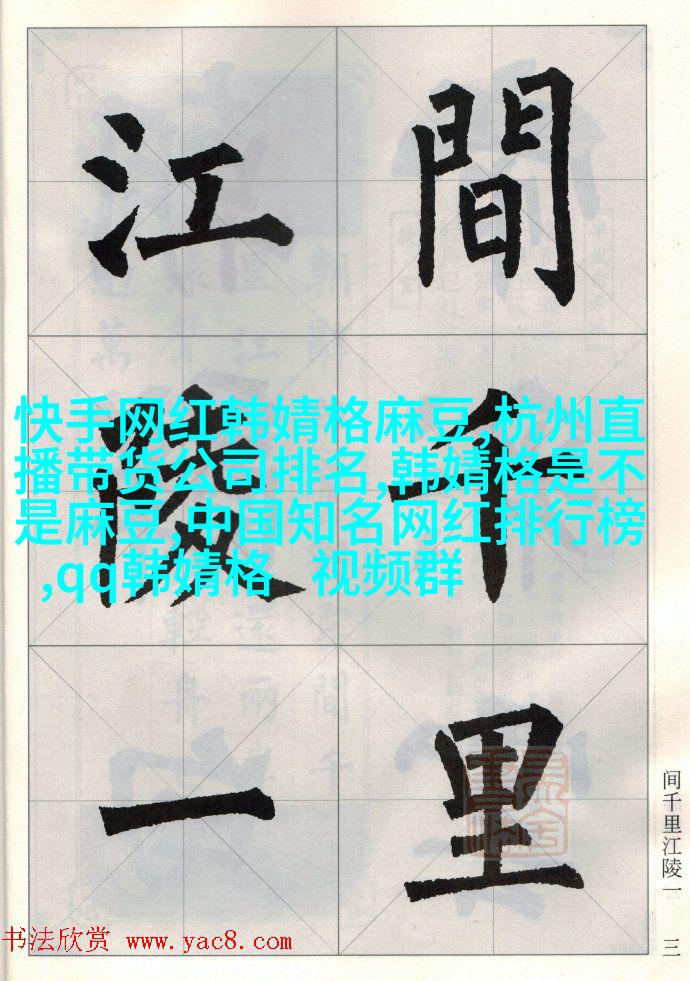 間千里
江陵一
快手网红韩婧格麻豆,杭州直
播带货公司排名,韩婧格是不
是麻豆,中国知名网红排行榜
,qq韩婧格 视频群
间千里江陵一 三
书法欣赏 www.yac8.com